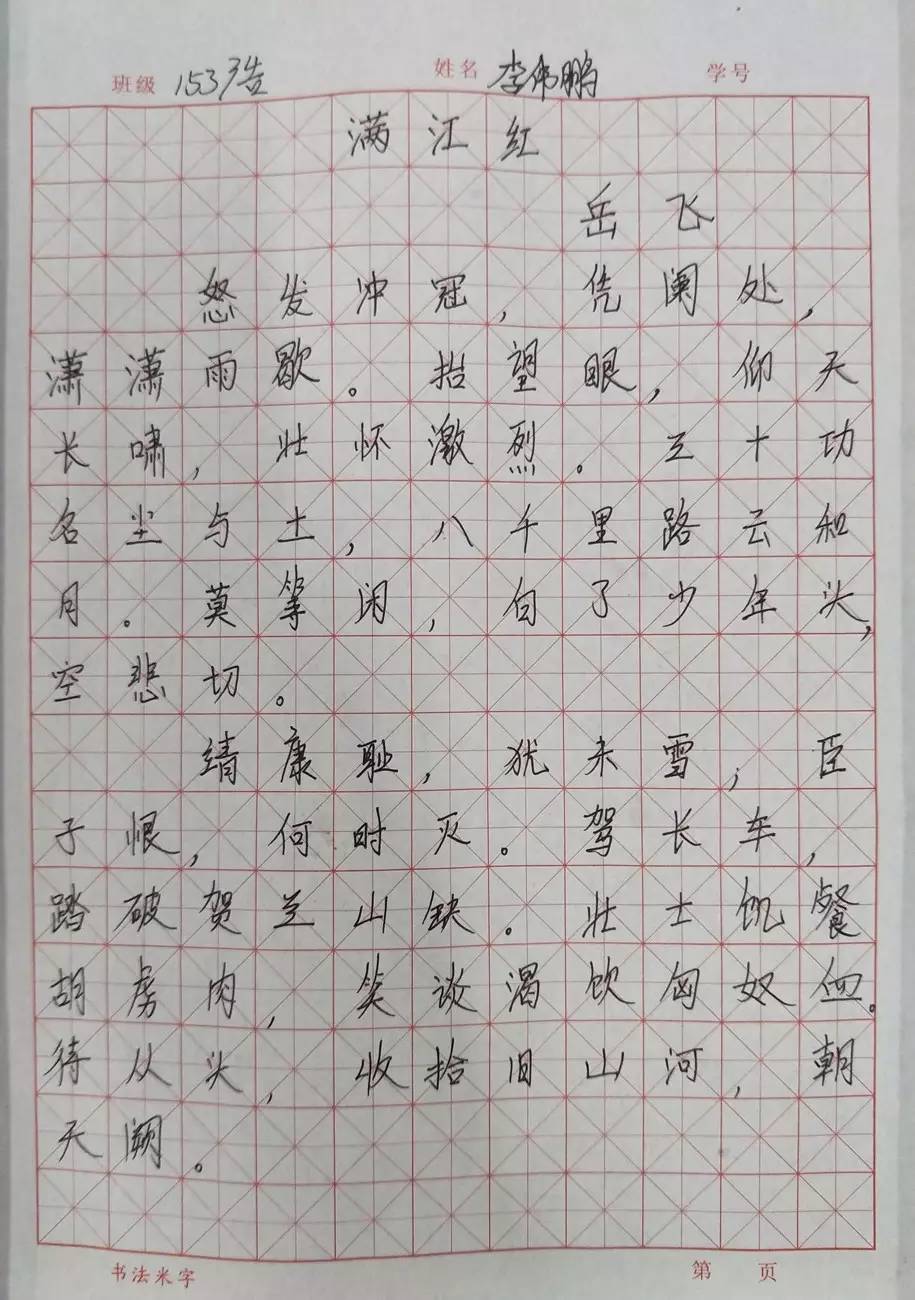 班级 153广告 姓名 李伟鹏 学号
满江红
岳飞
怒发冲冠，凭阑处，
潇潇雨歇。抬望眼，仰天
长啸，壮怀激烈。三十功
名尘与土，八千里路云和
月。莫等闲，白了少年头，
空悲切。
靖康耻，犹未雪；臣
子恨，何时灭。驾长车，
踏破贺兰山缺。壮士饥餐
胡虏肉，笑谈渴饮匈奴血。
待从头，收拾旧山河，朝
天阙。
书法米字 第 页